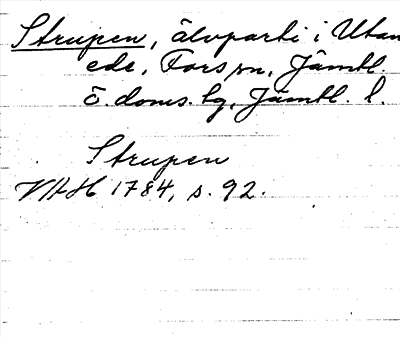 Strupen, älvparti i Utan
ede, Fors sn, Jämtl.
ö. doms. bg, Jämtl. l.
Strupen
VAH 1784, s. 92.